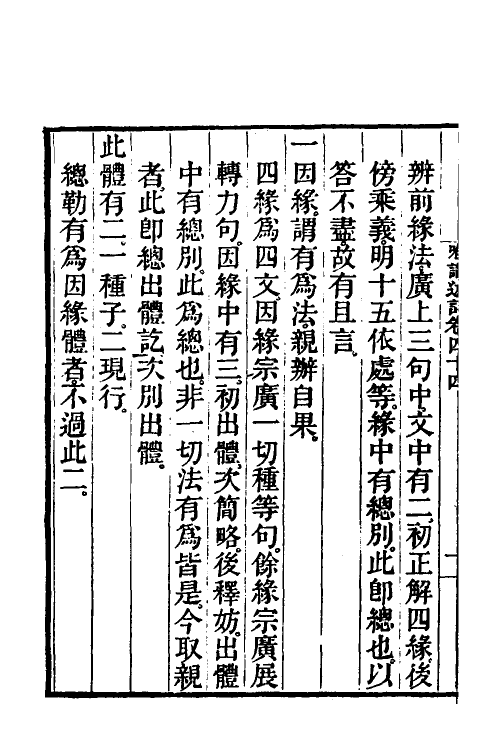 辨前緣法廣上三句中文中有二初正解四緣後
傍乘義明十五依處等緣中有總別此卽總也以
答不盡故有且言
一因緣謂有爲法親辦自果
四緣爲四文因緣宗廣一切種等句餘緣宗廣展
轉力句因緣中有三初出體次簡略後釋妨出體
中有總別此爲總也非一切法有爲皆是今取親
者此卽總出體訖次別出體
此體有二一種子二現行
總勒有爲因緣體者不過此二